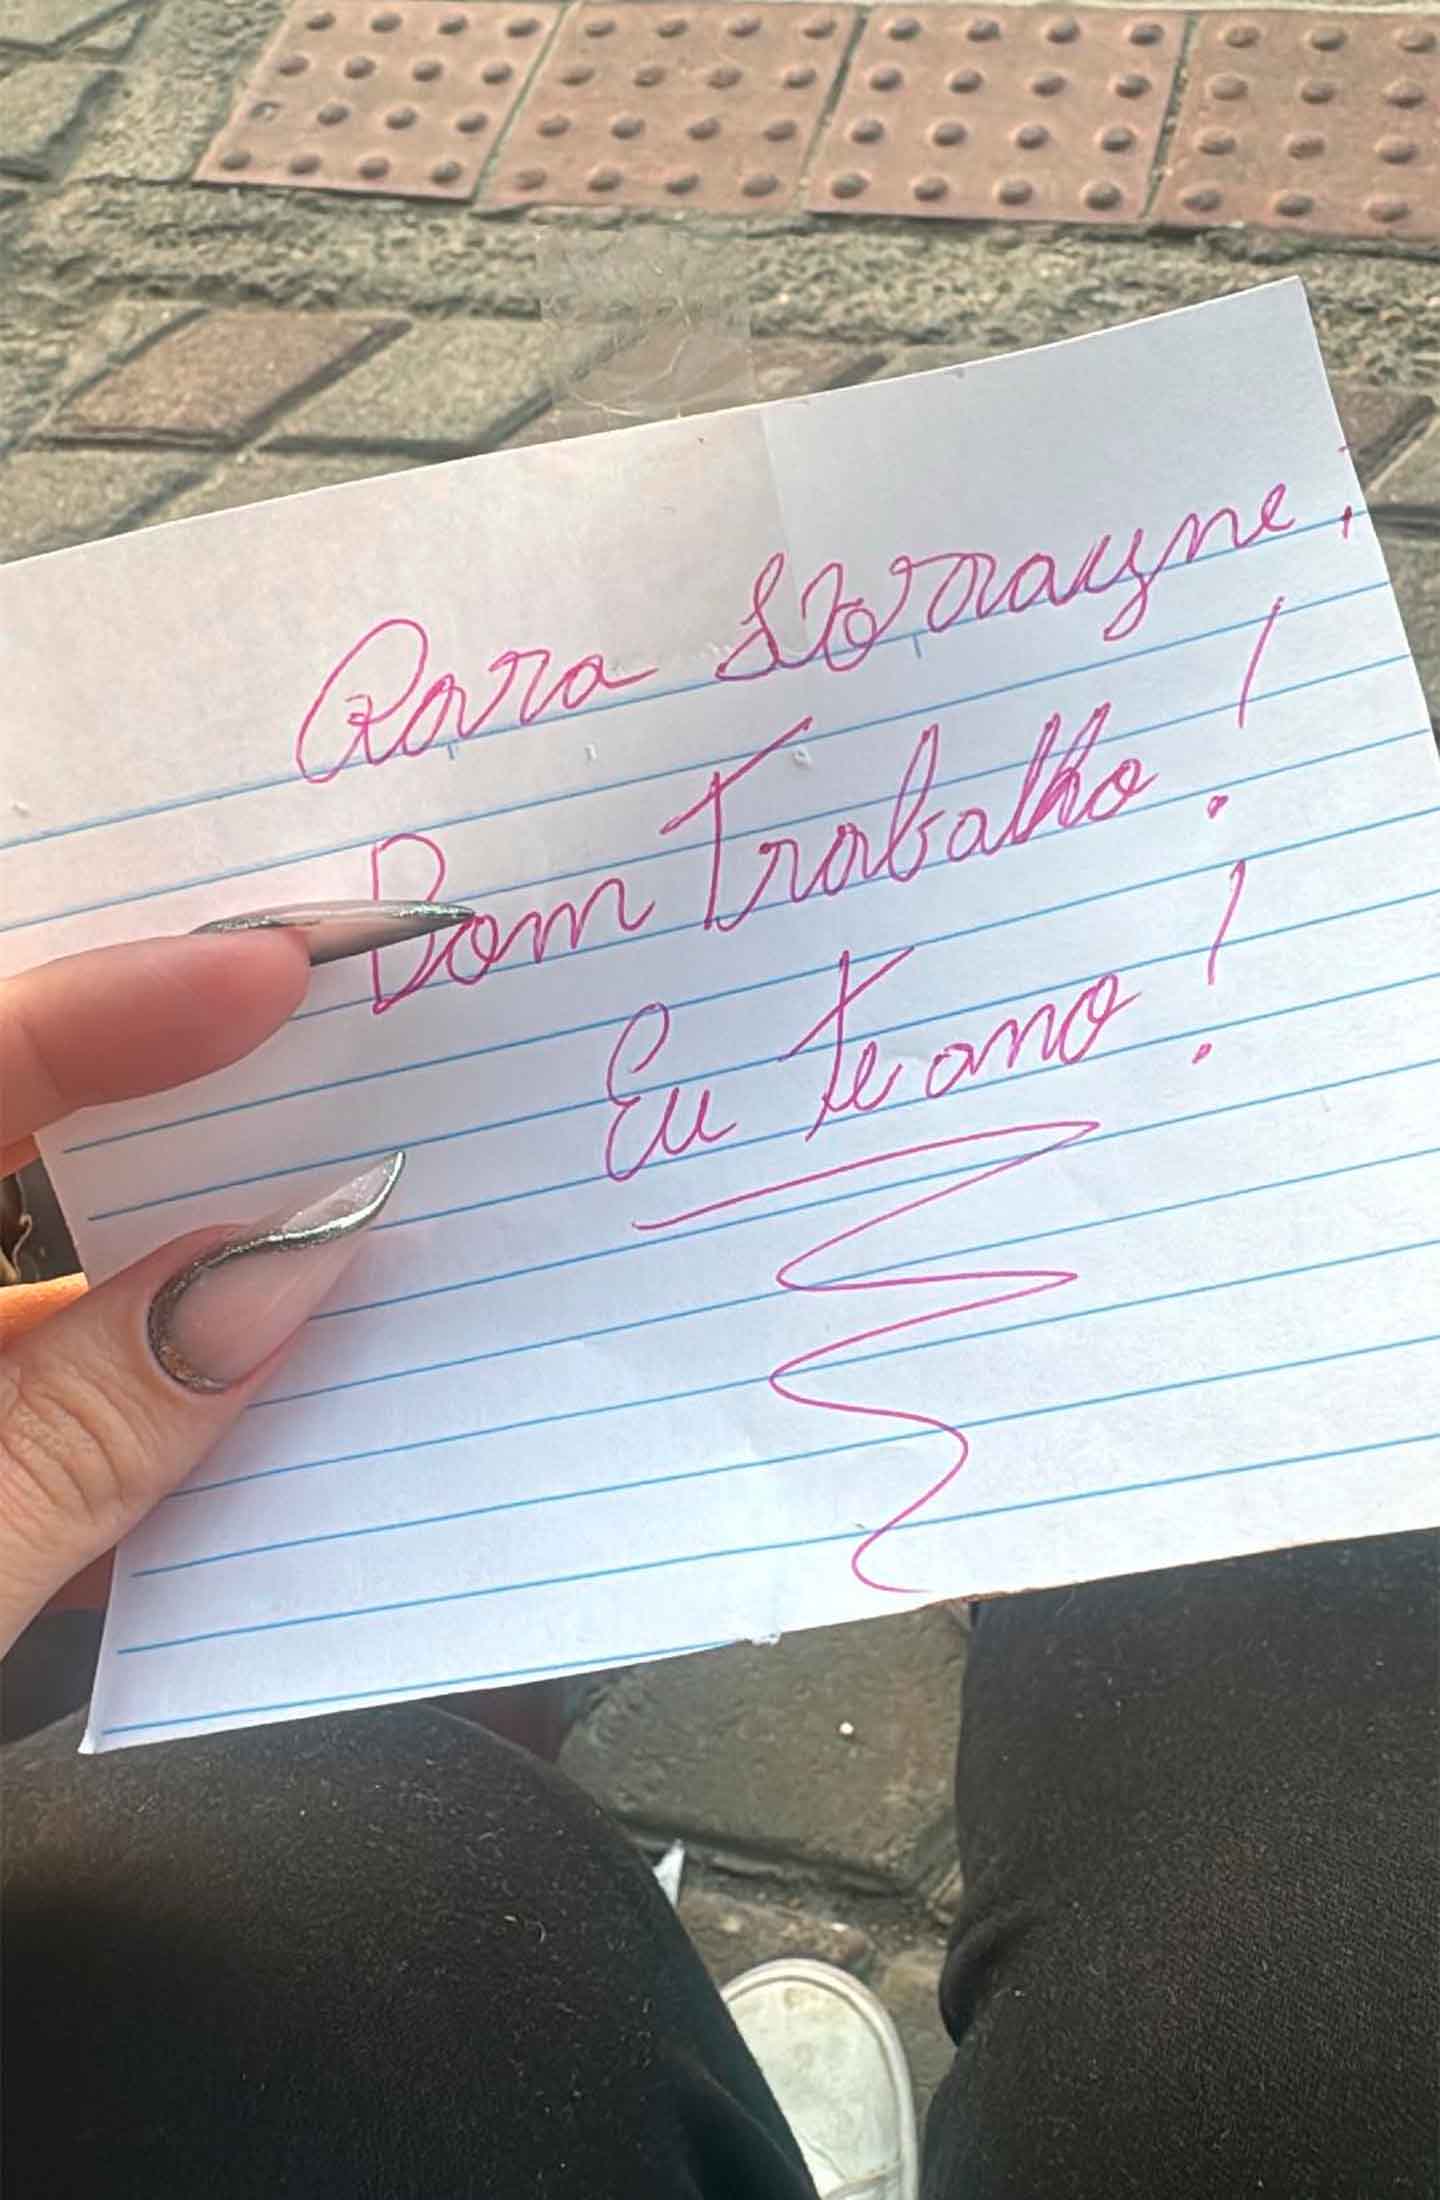 Para Lorrayne.
Bom Trabalho!
Eu te amo!